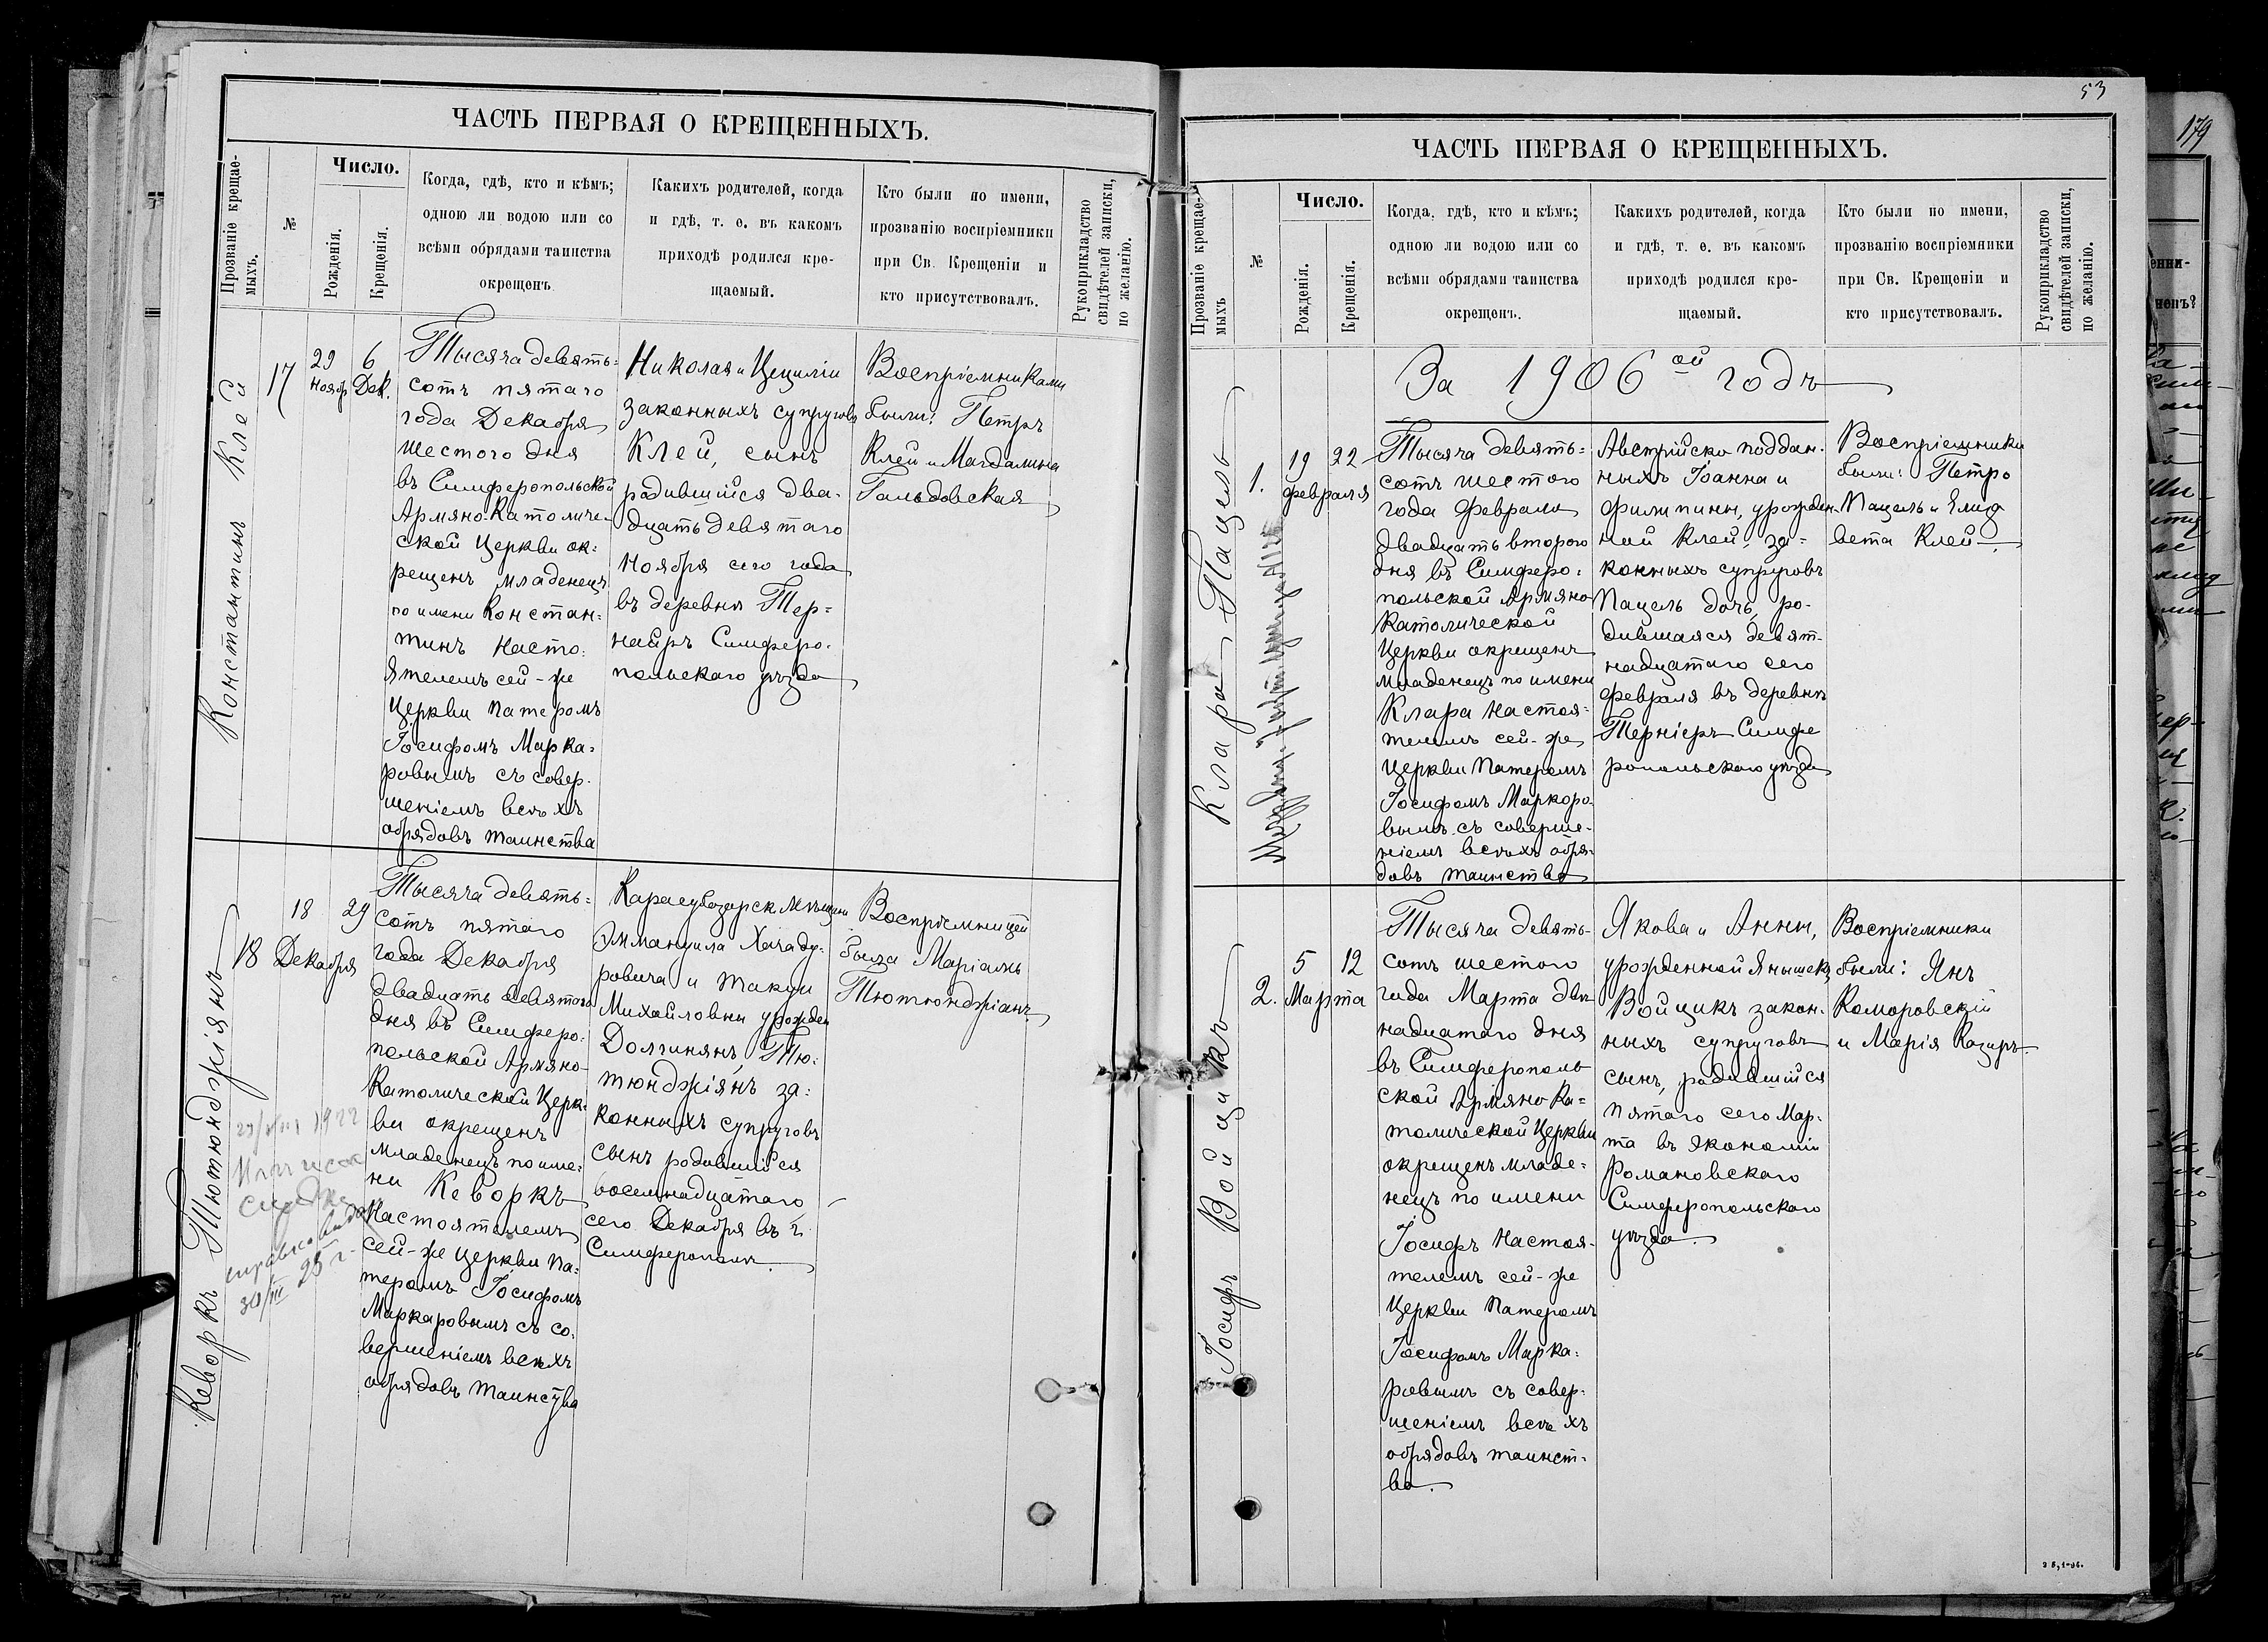 ЧАСТЬ ПЕРВАЯ О КРЕЩЕННЫХЪ.
Прозваніе крещае-
мыхъ.
№
Число.
Рожденія.
Крещенія.
Когда, гдѣ, кто и кѣмъ;
одною ли водою или со
всѣми обрядами таинства
окрещенъ
Какихъ родителей, когда
и гдѣ, т. е. въ какомъ
приходѣ родился кре-
щаемый.
Кто были по имени,
прозванію воспріемники
при Св. Крещеніи и
кто присутствовалъ.
Рукоприкладство
свидѣтелей записки,
по желанію.
Константинъ Клей
17
29
Ноябр
6
Дек.
Тысяча девять=
сотъ пятаго
года Декабря
шестого дня
въ Симферопольской
Армяно-Католиче-
ской Церкви ок=
рещенъ младенецъ
по имени Констан=
тинъ Насто=
ятелемъ сей-же
Церкви Патеромъ
Іосифомъ Марка=
ровымъ съ совер-
шеніемъ всѣхъ
обрядовъ таинства
Николая и Цециліи
законныхъ супруговъ
Клей, сынъ
родившійся два-
дцать девятаго
Ноября сего года
въ деревнѣ Тер=
наиръ Симферо-
польскаго уѣзда
Воспріемниками
были: Петръ
Клей и Магдалина
Гальдовская
Кеворкъ Тютюнджіянъ
18
18
29
Декабря
Тысяча девять=
сотъ пятаго
года Декабря
двадцать девятаго
дня въ Симферо=
польской Армяно-
Католической Церк-
ви окрещенъ
младенецъ по име=
ни Кеворкъ
Настоятелемъ
сей-же Церкви Па=
теромъ Іосифомъ
Маркаровымъ съ со=
вершеніемъ всѣхъ
обрядовъ таинства
Карасубазарск мѣщан
Эммануила Хачаду-
ровича и Такуи
Михайловны урожден
Долчинянъ, Тю=
тюнджіянъ за=
конныхъ супруговъ
сынъ родившійся
восемнадцатаго
сего Декабря въ г.
Симферополѣ.
Воспріемницей
была Маріамъ
Тютюнджіанъ
1922
30/III 25 г.
53
ЧАСТЬ ПЕРВАЯ О КРЕЩЕННЫХЪ.
Прозваніе крещае-
мыхъ
№
Число.
Рожденія.
Крещенія.
Когда, гдѣ, кто и кѣмъ;
одною ли водою или со
всѣми обрядами таинства
окрещенъ.
Какихъ родителей, когда
и гдѣ, т. е. въ какомъ
приходѣ родился кре-
щаемый.
Кто были по имени,
прозванію воспріемники
при Св. Крещеніи и
кто присутствовалъ.
Рукоприкладство
свидѣтелей записки,
по желанію.
За 1906ой годъ
Клара Пацель
1.
19
22
февраля
Тысяча девять=
сотъ шестого
года февраля
двадцать второго
дня въ Симферо=
польской Армяно-
Католической
Церкви окрещенъ
младенецъ по имени
Клара Настоя=
телемъ сей-же
Церкви Патеромъ
Іосифомъ Маркоро-
вымъ съ соверше-
ніемъ всѣхъ обря-
довъ таинства
Австрійско поддан-
ныхъ Іоанна и
Филипины, урожден-
ной Клей, за=
конныхъ супруговъ
Пацель дочь, ро-
дившаяся девят-
надцатаго сего
февраля въ деревнѣ
Терніеръ Симфе
ропольскаго уѣзда
Воспріемники
были: Петро
Пацель и Елиза
вета Клей.
Іосифъ Войцикъ
2.
5
12
Марта
Тысяча девять-
сотъ шестого
года Марта две
надцатаго дня
въ Симферополь
ской Армяно Ка=
толической Церкви
окрещенъ младе=
нецъ по имени
Іосифъ Настоя-
телемъ сей-же
Церкви Патеромъ
Іосифомъ Марка=
ровымъ съ совер=
шеніемъ всѣхъ
обрядовъ таинст=
ва.
Якова и Анны,
урожденной Янышекъ
Войцикъ закон-
ныхъ супруговъ
сынъ, родившійся
пятаго сего Мар-
та въ Экономіи
Романовскаго
Симферопольскаго
уѣзда.
Воспріемники
были: Янъ
Коморовскій
и Марія Казиръ.
179